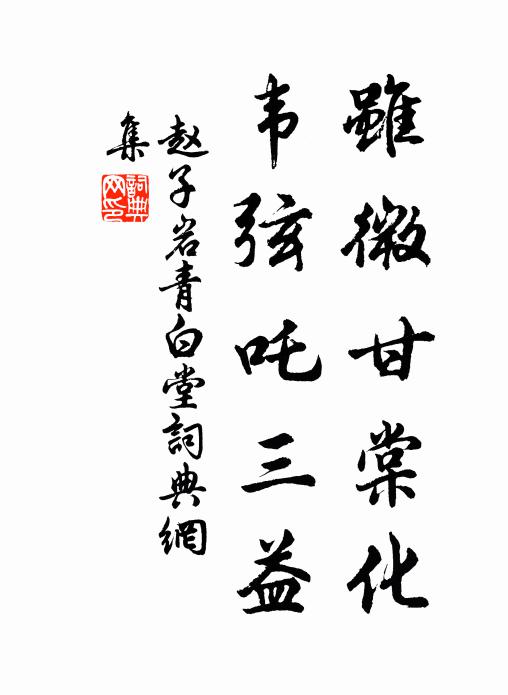 雖微甘棠化
韦弦吒三益
赵子岩青白堂詞典網
集
詞典
网印